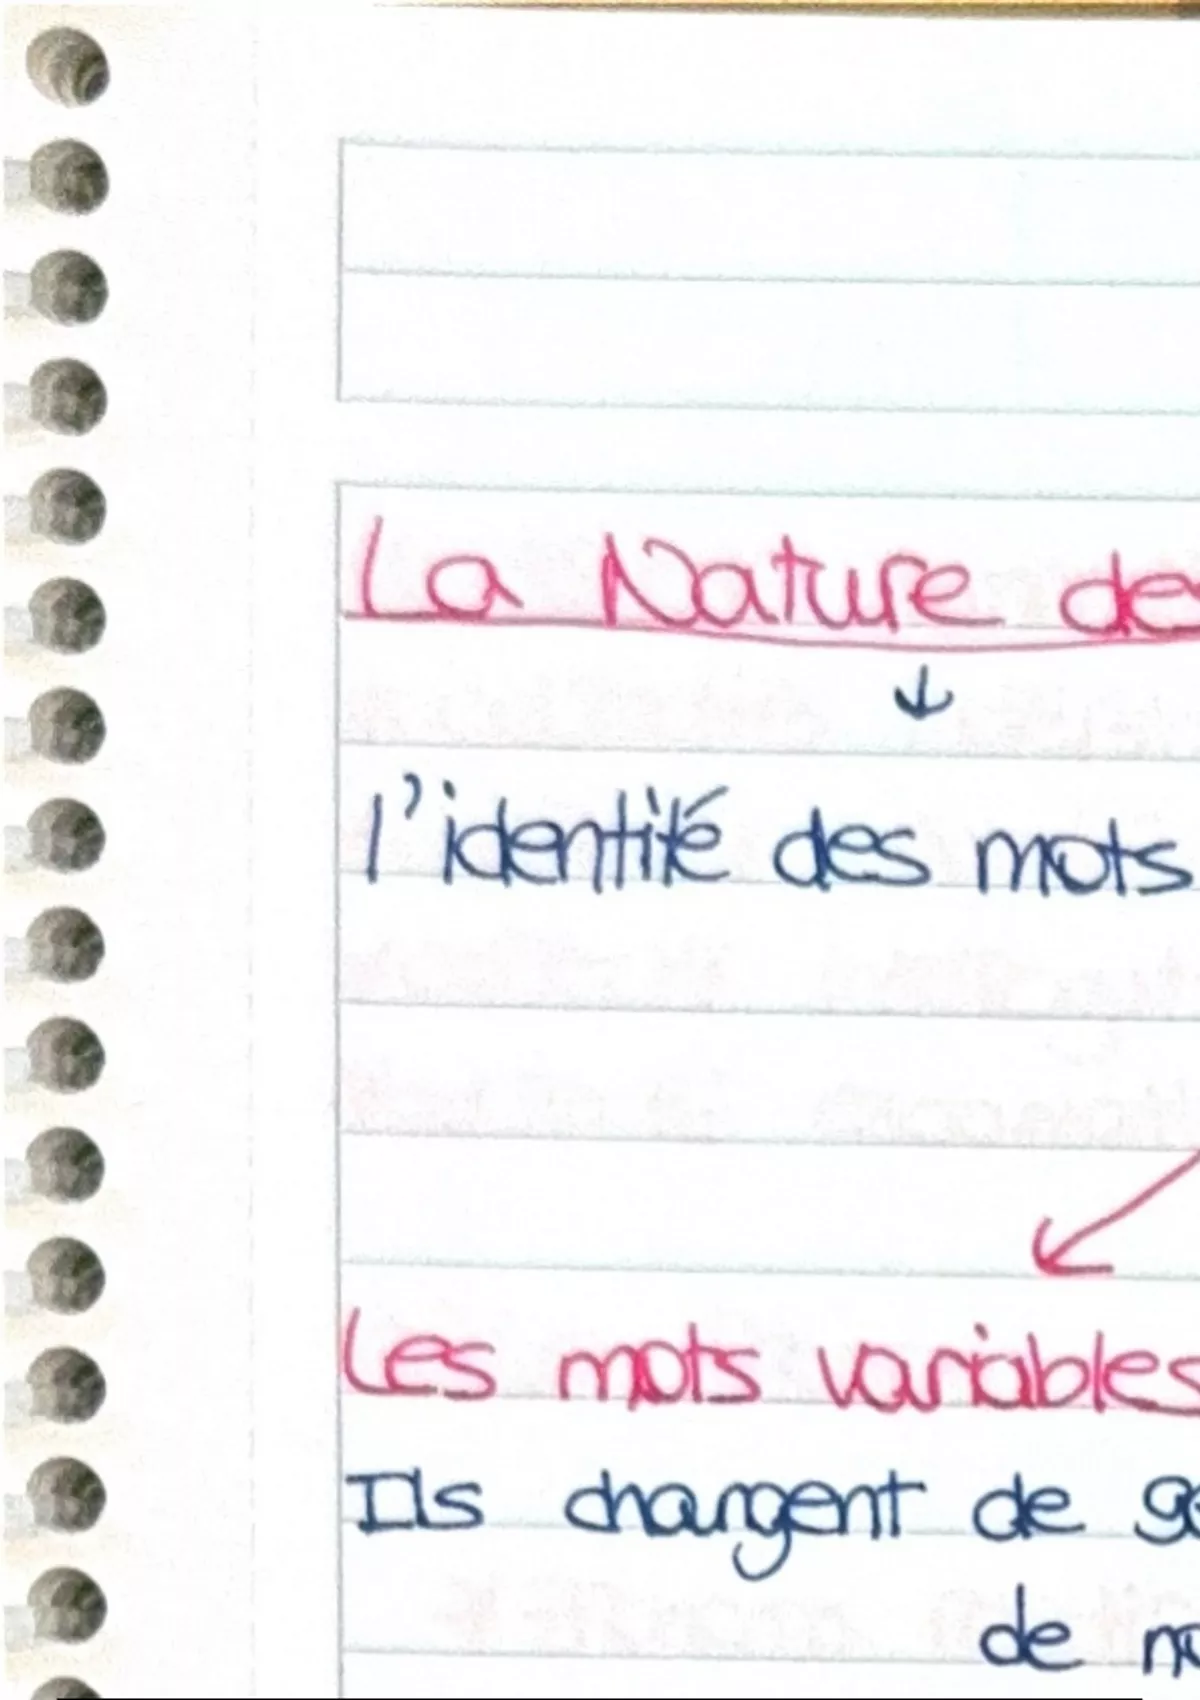 La Nature de
↓
l'identité des mots
Les mots variables
Ils changent de
de